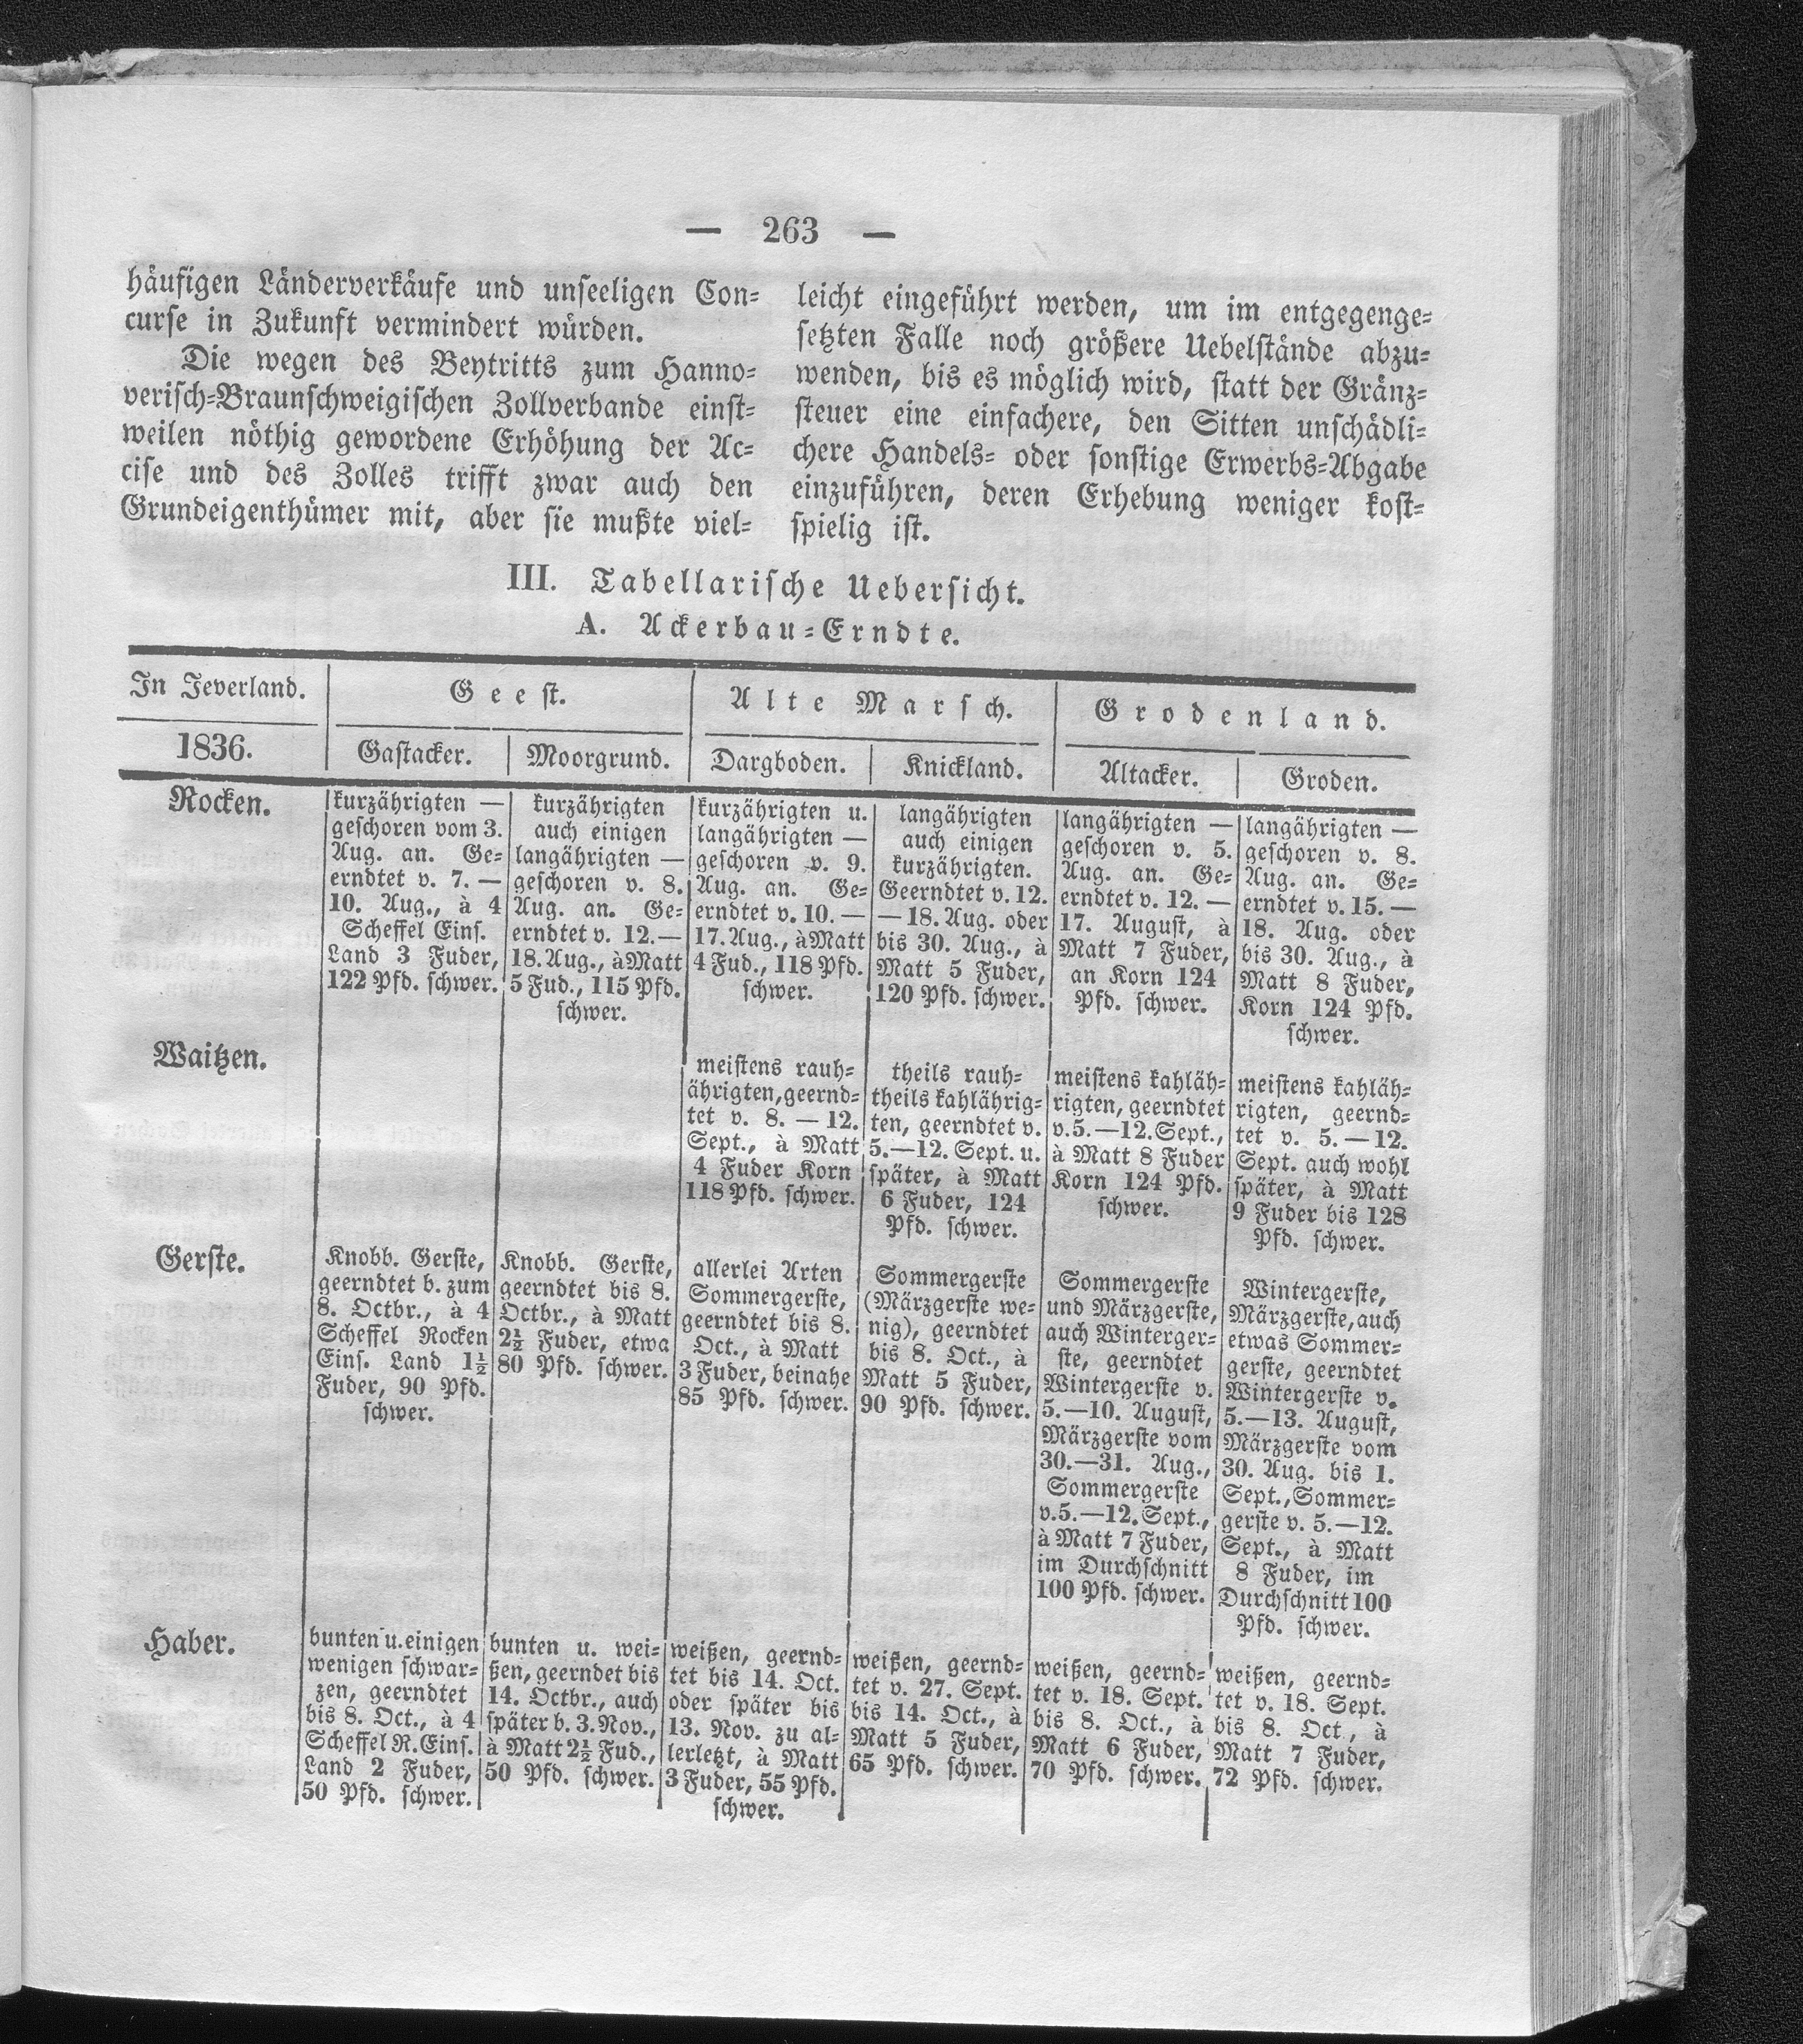 — 263 —
häufigen Länderverkäufe und unseeligen Con-
curse in Zukunft vermindert würden.
Die wegen des Beytritts zum Hanno-
verisch-Braunschweigischen Zollverbande einst-
weilen nöthig gewordene Erhöhung der Ac-
cise und des Zolles trifft zwar auch den
Grundeigenthümer mit, aber sie mußte viel-
leicht eingeführt werden, um im entgegenge-
setzten Falle noch größere Uebelstände abzu-
wenden, bis es möglich wird, statt der Gränz-
steuer eine einfachere, den Sitten unschädli-
chere Handels- oder sonstige Erwerbs-Abgabe
einzuführen, deren Erhebung weniger kost-
spielig ist.
III. Tabellarische Uebersicht.
A. Ackerbau-Erndte.
In Jeverland.
Geest.
Alte Marsch.
Grodenland.
1836.
Gastacker.
Moorgrund.
Dargboden.
Knickland.
Altacker.
Groden.
Rocken.
kurzährigten —
geschoren vom 3.
Aug. an. Ge-
erndtet v. 7. —
10. Aug., à 4
Scheffel Eins.
Land 3 Fuder,
122 Pfd. schwer.
kurzährigten
auch einigen
langährigten —
geschoren v. 8.
Aug. an. Ge-
erndtet v. 12. —
18. Aug., à Matt
5 Fud., 115 Pfd.
schwer.
kurzährigten u.
langährigten —
geschoren v. 9.
Aug. an. Ge-
erndtet v. 10. —
17. Aug., à Matt
4 Fud., 118 Pfd.
schwer.
langährigten
auch einigen
kurzährigten.
Geerndtet v. 12.
— 18. Aug. oder
bis 30. Aug., à
Matt 5 Fuder,
120 Pfd. schwer.
langährigten —
geschoren v. 5.
Aug. an. Ge-
erndtet v. 12. —
17. August, à
Matt 7 Fuder,
an Korn 124
Pfd. schwer.
langährigten —
geschoren v. 8.
Aug. an. Ge-
erndtet v. 15. —
18. Aug. oder
bis 30. Aug., à
Matt 8 Fuder,
Korn 124 Pfd.
schwer.
Waitzen.
meistens rauh-
ährigten, geernd-
tet v. 8. — 12.
Sept., à Matt
4 Fuder Korn
118 Pfd. schwer.
theils rauh-
theils kahlährig-
ten, geerndtet v.
5.—12. Sept. u.
später, à Matt
6 Fuder, 124
Pfd. schwer.
meistens kahläh-
rigten, geerndtet
v. 5.—12. Sept.,
à Matt 8 Fuder
Korn 124 Pfd.
schwer.
meistens kahläh-
rigten, geernd-
tet v. 5. — 12.
Sept. auch wohl
später, à Matt
9 Fuder bis 128
Pfd. schwer.
Gerste.
Knobb. Gerste,
geerndtet b. zum
8. Octbr., à 4
Scheffel Rocken
Eins. Land 1½
Fuder, 90 Pfd.
schwer.
Knobb. Gerste,
geerndtet bis 8.
Octbr., à Matt
2½ Fuder, etwa
80 Pfd. schwer.
allerlei Arten
Sommergerste,
geerndtet bis 8.
Oct., à Matt
3 Fuder, beinahe
85 Pfd. schwer.
Sommergerste
(Märzgerste we-
nig), geerndtet
bis 8. Oct., à
Matt 5 Fuder,
90 Pfd. schwer.
Sommergerste
und Märzgerste,
auch Winterger-
ste, geerndtet
Wintergerste v.
5.—10. August,
Märzgerste vom
30.—31. Aug.,
Sommergerste
v. 5.—12. Sept.,
à Matt 7 Fuder,
im Durchschnitt
100 Pfd. schwer.
Wintergerste,
Märzgerste, auch
etwas Sommer-
gerste, geerndtet
Wintergerste v.
5.—13. August,
Märzgerste vom
30. Aug. bis 1.
Sept., Sommer-
gerste v. 5.—12.
Sept., à Matt
8 Fuder, im
Durchschnitt 100
Pfd. schwer.
Haber.
bunten u. einigen
wenigen schwar-
zen, geerndtet
bis 8. Oct., à 4
Scheffel R. Eins.
Land 2 Fuder,
50 Pfd. schwer.
bunten u. wei-
ßen, geerndet bis
14. Octbr., auch
später b. 3. Nov.,
à Matt 2½ Fud.,
50 Pfd. schwer.
weißen, geernd-
tet bis 14. Oct.
oder später bis
13. Nov. zu al-
lerletzt, à Matt
3 Fuder, 55 Pfd.
schwer.
weißen, geernd-
tet v. 27. Sept.
bis 14. Oct., à
Matt 5 Fuder,
65 Pfd. schwer.
weißen, geernd-
tet v. 18. Sept.
bis 8. Oct., à
Matt 6 Fuder,
70 Pfd. schwer.
weißen, geernd-
tet v. 18. Sept.
bis 8. Oct, à
Matt 7 Fuder,
72 Pfd. schwer.